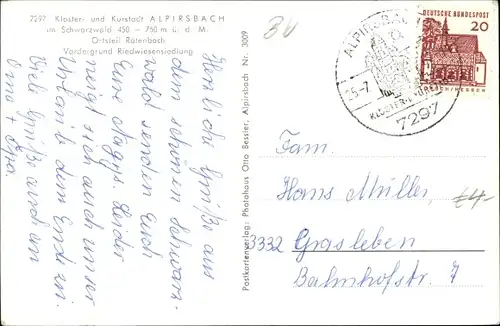 7297 Kloster- und Kurstadt ALPIRSBACH
im Schwarzwald 450 - 750 m ü. d. M.
Ortsteil Rötenbach
Vordergrund Riedwiesensiedlung
Herzliche Grüße aus
dem schönen Schwarz-
wald senden Euch
Eure Nagys. Leider
neigt sich auch unser
Urlaub dem Ende zu.
Viele Grüße auch an
Oma + Opa.
Postkartenverlag: Photohaus Otto Bessler, Alpirsbach Nr. 3009
ALPIRSBACH
7297
DEUTSCHE BUNDESPOST
20
Fam.
Hans Müller
3332 Grasleben
Bahnhofstr. 7